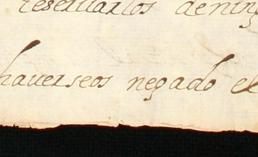 reservarlos de ning
haverseos negado el